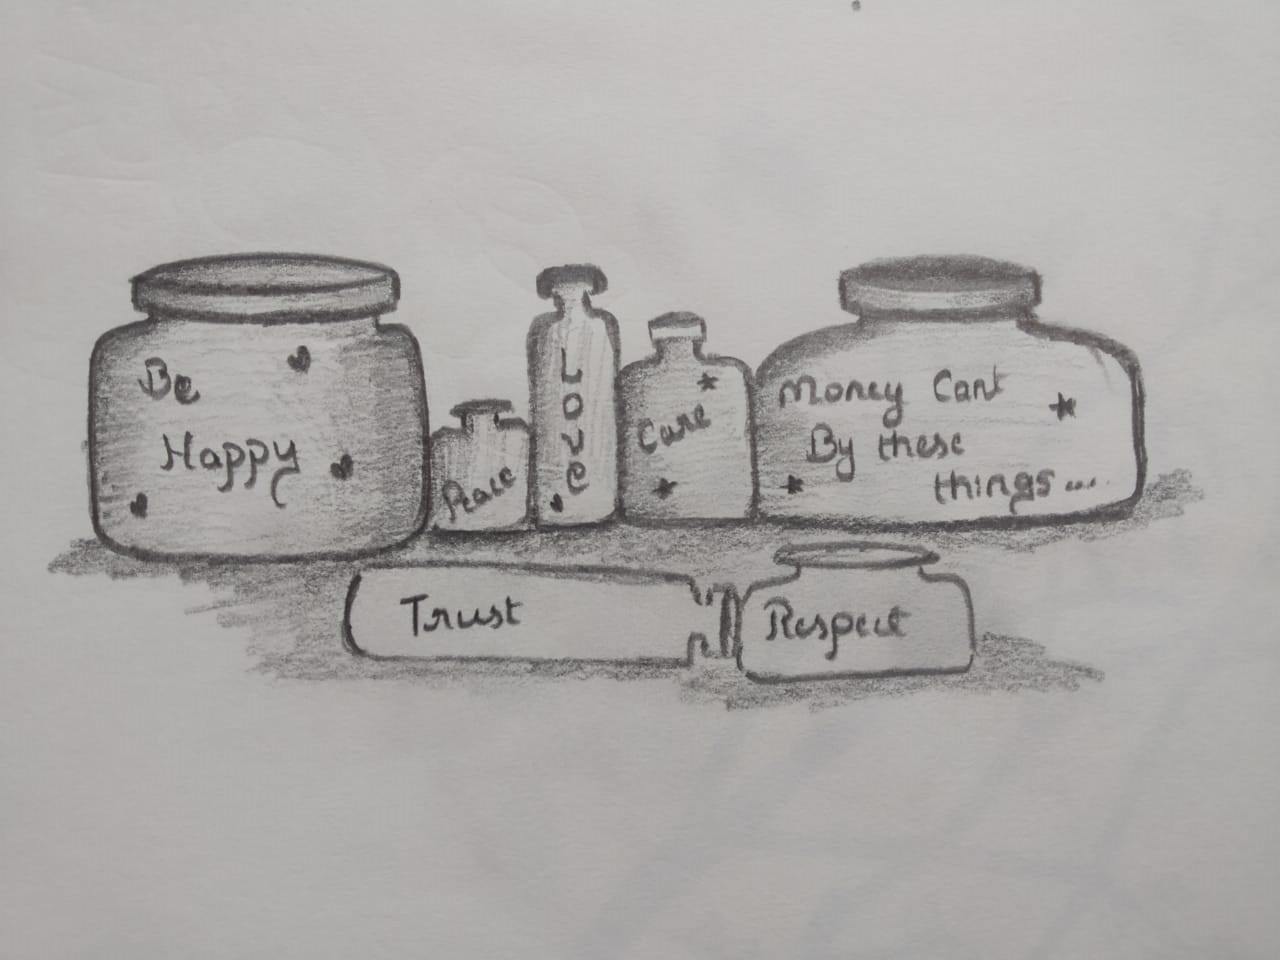 Be
Happy
Peace
Love
Care
Money Can't
By these
things....
Trust
Respect